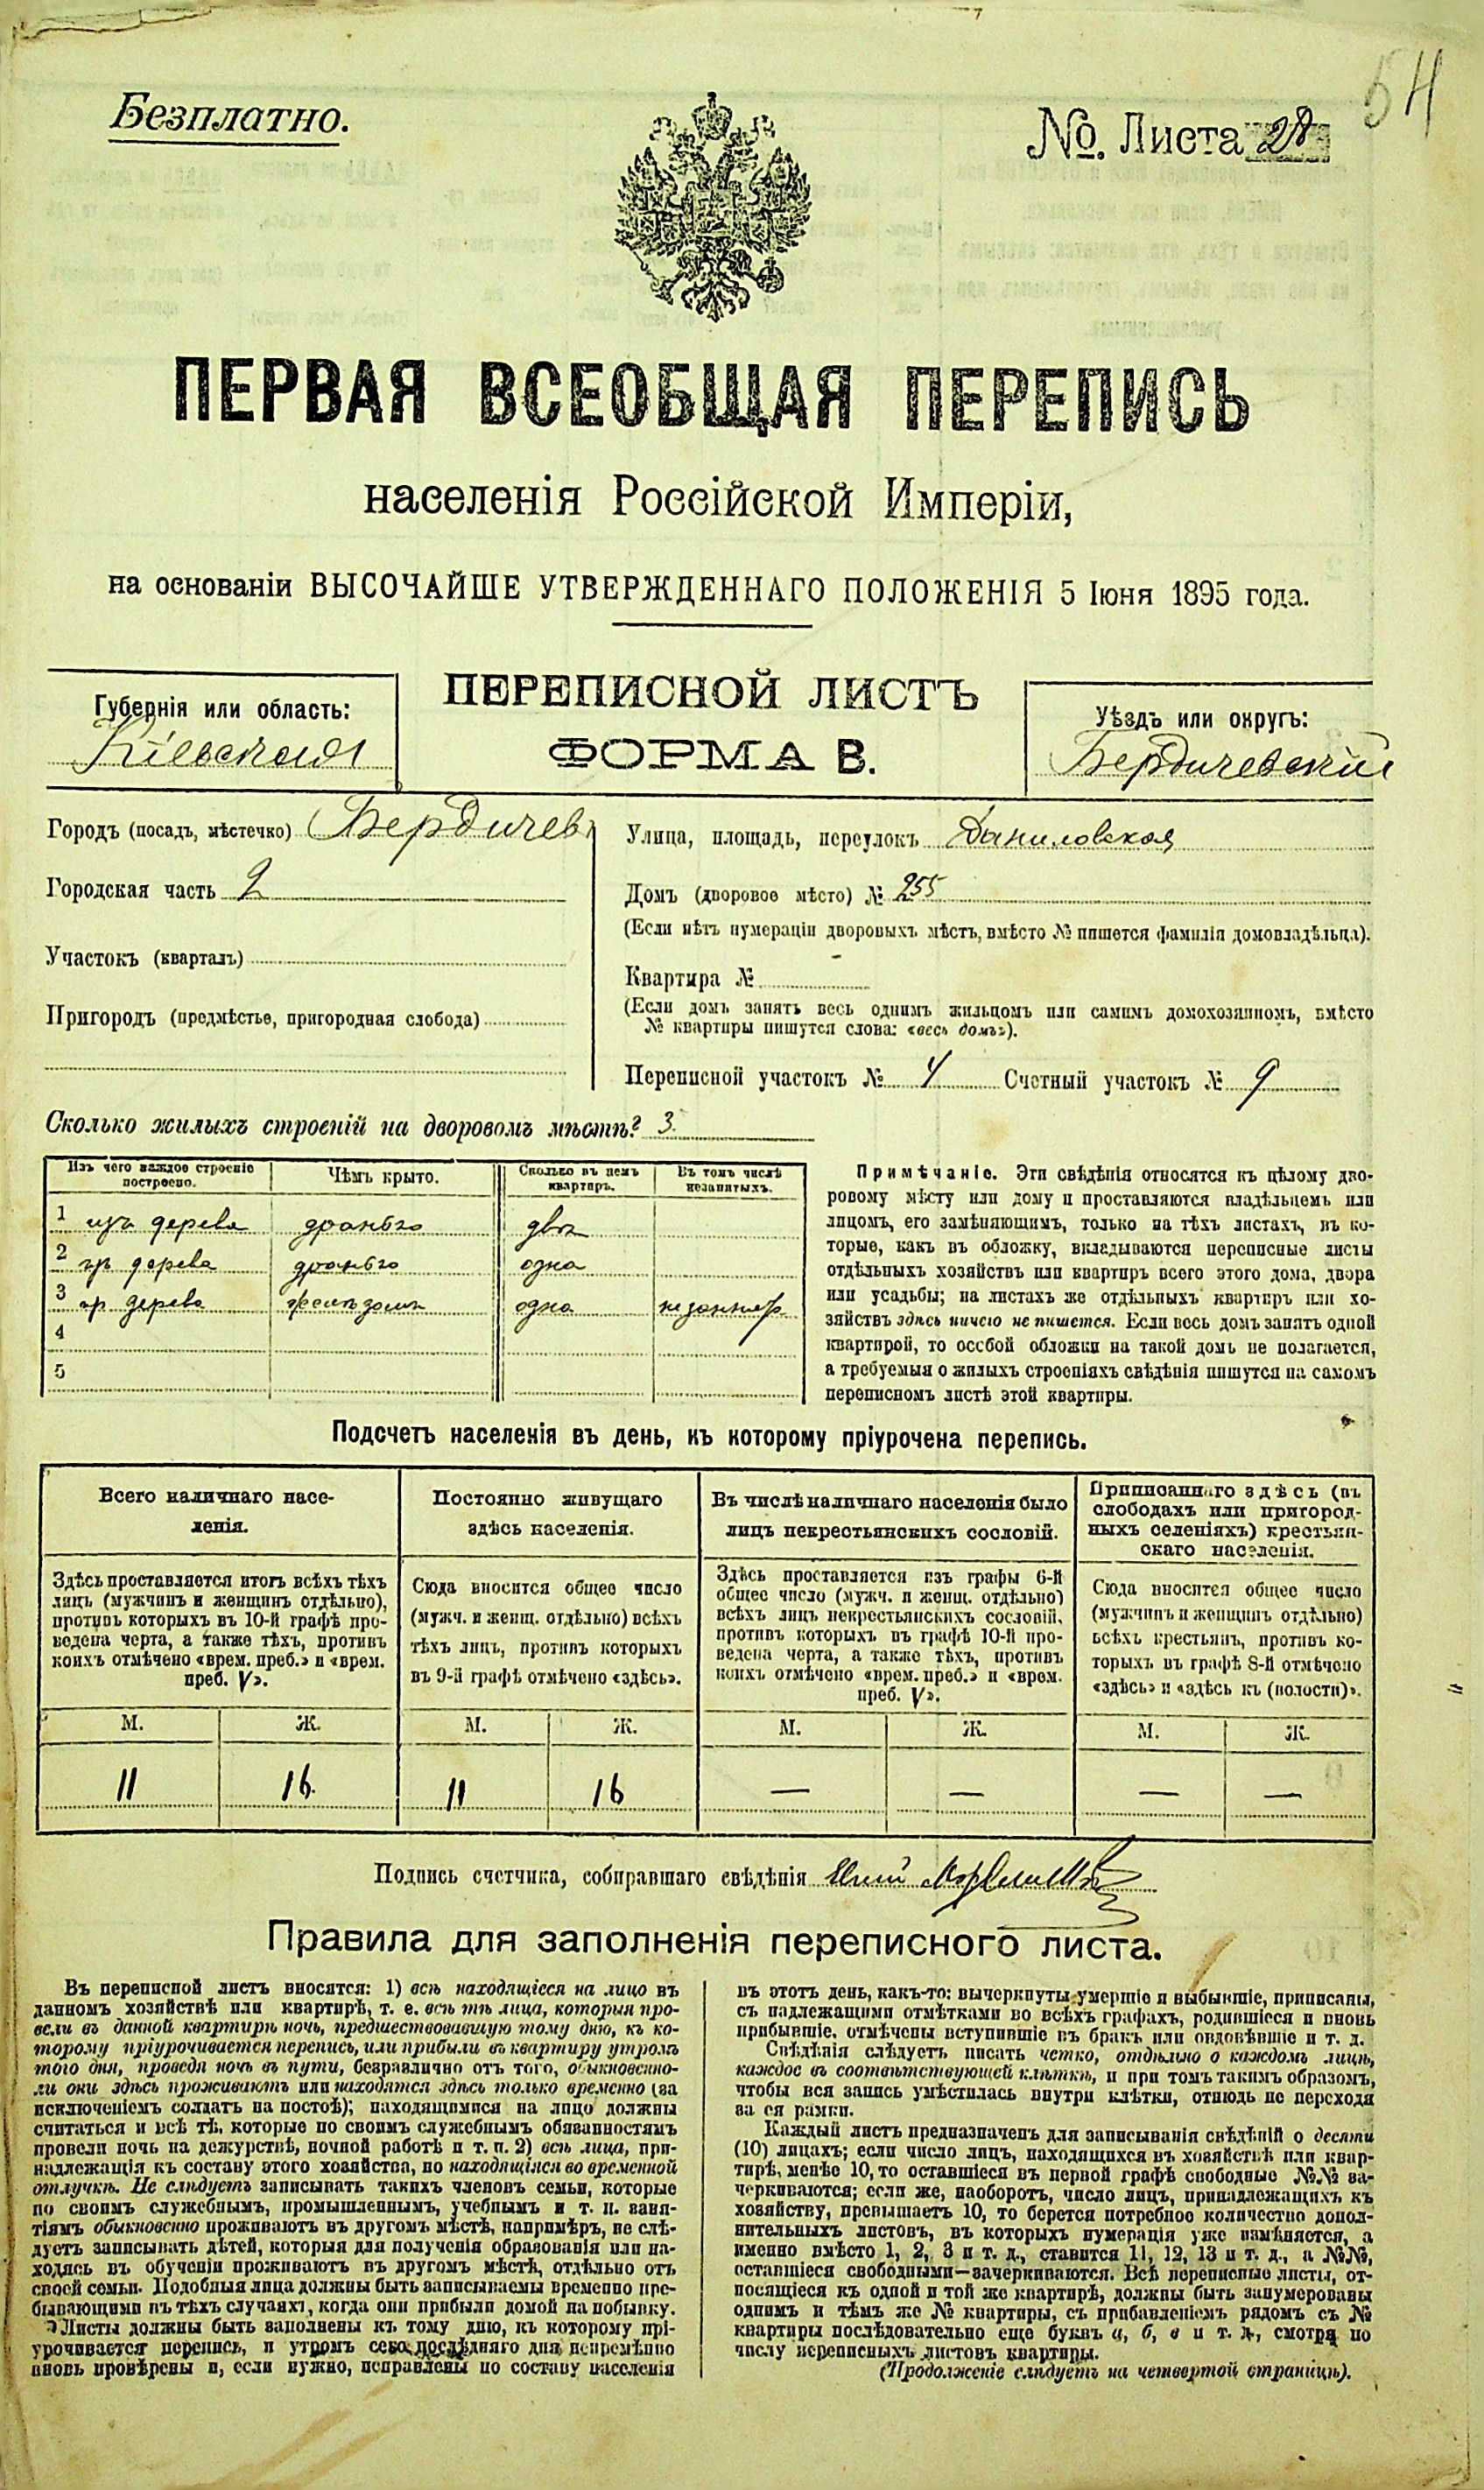 54
Безплатно.
№. Листа 28
ПЕРВАЯ ВСЕОБЩАЯ ПЕРЕПИСЬ
населенія Россійской Имперіи,
на основаніи ВЫСОЧАЙШЕ УТВЕРЖДЕННАГО ПОЛОЖЕНІЯ 5 Іюня 1895 года.
Губернія или область:
Кіевская
ПЕРЕПИСНОЙ ЛИСТЪ
ФОРМА В.
Уѣздъ или округъ:
Бердичевскій
Городъ (посадъ, мѣстечко) Бердичевъ
Городская часть 2
Участокъ (кварталъ)
Пригородъ (предмѣстье, пригородная слобода)
Улица, площадь, переулокъ Даниловская
Домъ (дворовое мѣсто) № 255
(Если нѣтъ нумераціи дворовыхъ мѣстъ, вмѣсто № пишется фамилія домовладѣльца).
Квартира №
(Если домъ занятъ весь однимъ жильцомъ или самимъ домохозяиномъ, вмѣсто
№ квартиры пишутся слова: «весь домъ»).
Переписной участокъ № 4 Счетный участокъ № 9
Сколько жилыхъ строеній на дворовомъ мѣстѣ? 3
Изъ чего каждое строеніе построено. Чѣмъ крыто. Сколько въ немъ квартиръ. Въ томъ числѣ незанятыхъ.
1 изъ дерева дранью двѣ
2 изъ дерева дранью одна
3 дерева одна
4
5
Примѣчаніе. Эти свѣдѣнія относятся къ цѣлому дво-
ровому мѣсту или дому и проставляются владѣльцемъ или
лицомъ, его замѣняющимъ, только на тѣхъ листахъ, въ ко-
торые, какъ въ обложку, вкладываются переписные листы
отдѣльныхъ хозяйствъ или квартиръ всего этого дома, двора
или усадьбы; на листахъ же отдѣльныхъ квартиръ или хо-
зяйствъ здѣсь ничего не пишется. Если весь домъ занятъ одной
квартирой, то особой обложки на такой домъ не полагается,
а требуемыя о жилыхъ строеніяхъ свѣдѣнія пишутся на самомъ
переписномъ листѣ этой квартиры.
Подсчетъ населенія въ день, къ которому пріурочена перепись.
Всего наличнаго насе-
ленія.
Здѣсь проставляется итогъ всѣхъ тѣхъ
лицъ (мужчинъ и женщинъ отдѣльно),
противъ которыхъ въ 10-й графѣ про-
ведена черта, а также тѣхъ, противъ
коихъ отмѣчено «врем. преб.» и «врем.
преб. V».
М. Ж.
11 16
Постоянно живущаго
здѣсь населенія.
Сюда вносится общее число
(мужч. и женщ. отдѣльно) всѣхъ
тѣхъ лицъ, противъ которыхъ
въ 9-й графѣ отмѣчено «здѣсь».
М. Ж.
11 16
Въ числѣ наличнаго населенія было
лицъ некрестьянскихъ сословій.
Здѣсь проставляется изъ графы 6-й
общее число (мужч. и женщ. отдѣльно)
всѣхъ лицъ некрестьянскихъ сословій,
противъ которыхъ въ графѣ 10-й про-
ведена черта, а также тѣхъ, противъ
коихъ отмѣчено «врем. преб.» и «врем.
преб. V».
М. Ж.
— —
Приписаннаго здѣсь (въ
слободахъ или пригород-
ныхъ селеніяхъ) крестьян-
скаго населенія.
Сюда вносится общее число
(мужчинъ и женщинъ отдѣльно)
всѣхъ крестьянъ, противъ ко-
торыхъ въ графѣ 8-й отмѣчено
«здѣсь» и «здѣсь къ (волости)».
М. Ж.
— —
Подпись счетчика, собиравшаго свѣдѣнія
Правила для заполненія переписного листа.
Въ переписной листъ вносятся: 1) всѣ находящіеся на лицо въ
данномъ хозяйствѣ или квартирѣ, т. е. всѣ тѣ лица, которыя про-
вели въ данной квартирѣ ночь, предшествовавшую тому дню, къ ко-
торому пріурочивается перепись, или прибыли въ квартиру утромъ
того дня, проведя ночь въ пути, безразлично отъ того, обыкновенно-
ли они здѣсь проживаютъ или находятся здѣсь только временно (за
исключеніемъ солдатъ на постоѣ); находящимися на лицо должны
считаться и всѣ тѣ, которые по своимъ служебнымъ обязанностямъ
провели ночь на дежурствѣ, ночной работѣ и т. п. 2) всѣ лица, при-
надлежащія къ составу этого хозяйства, но находящіяся во временной
отлучкѣ. Не слѣдуетъ записывать такихъ членовъ семьи, которые
по своимъ служебнымъ, промышленнымъ, учебнымъ и т. п. заня-
тіямъ обыкновенно проживаютъ въ другомъ мѣстѣ, напримѣръ, не слѣ-
дуетъ записывать дѣтей, которыя для полученія образованія или на-
ходясь въ обученіи проживаютъ въ другомъ мѣстѣ, отдѣльно отъ
своей семьи. Подобныя лица должны быть записываемы временно пре-
бывающими въ тѣхъ случаяхъ, когда они прибыли домой на побывку.
Листы должны быть заполнены къ тому дню, къ которому прі-
урочивается перепись, и утромъ сего послѣдняго дня непремѣнно
вновь провѣрены и, если нужно, исправлены по составу населенія
въ этотъ день, какъ-то: вычеркнуты умершіе и выбывшіе, приписаны,
съ надлежащими отмѣтками во всѣхъ графахъ, родившіеся и вновь
прибывшіе, отмѣчены вступившіе въ бракъ или овдовѣвшіе и т. д.
Свѣдѣнія слѣдуетъ писать четко, отдѣльно о каждомъ лицѣ,
каждое въ соотвѣтствующей клѣткѣ, и при томъ такимъ образомъ,
чтобы вся запись умѣстилась внутри клѣтки, отнюдь не переходя
за ея рамки.
Каждый листъ предназначенъ для записыванія свѣдѣній о десяти
(10) лицахъ; если число лицъ, находящихся въ хозяйствѣ или квар-
тирѣ, менѣе 10, то оставшіеся въ первой графѣ свободные №№ за-
черкиваются; если же, наоборотъ, число лицъ, принадлежащихъ къ
хозяйству, превышаетъ 10, то берется потребное количество допол-
нительныхъ листовъ, въ которыхъ нумерація уже измѣняется, а
именно вмѣсто 1, 2, 3 и т. д., ставится 11, 12, 13 и т. д., а №№,
оставшіеся свободными—зачеркиваются. Всѣ переписные листы, от-
носящіеся къ одной и той же квартирѣ, должны быть занумерованы
однимъ и тѣмъ же № квартиры, съ прибавленіемъ рядомъ съ №
квартиры послѣдовательно еще буквъ а, б, в и т. д., смотря по
числу переписныхъ листовъ квартиры.
(Продолженіе слѣдуетъ на четвертой страницѣ).